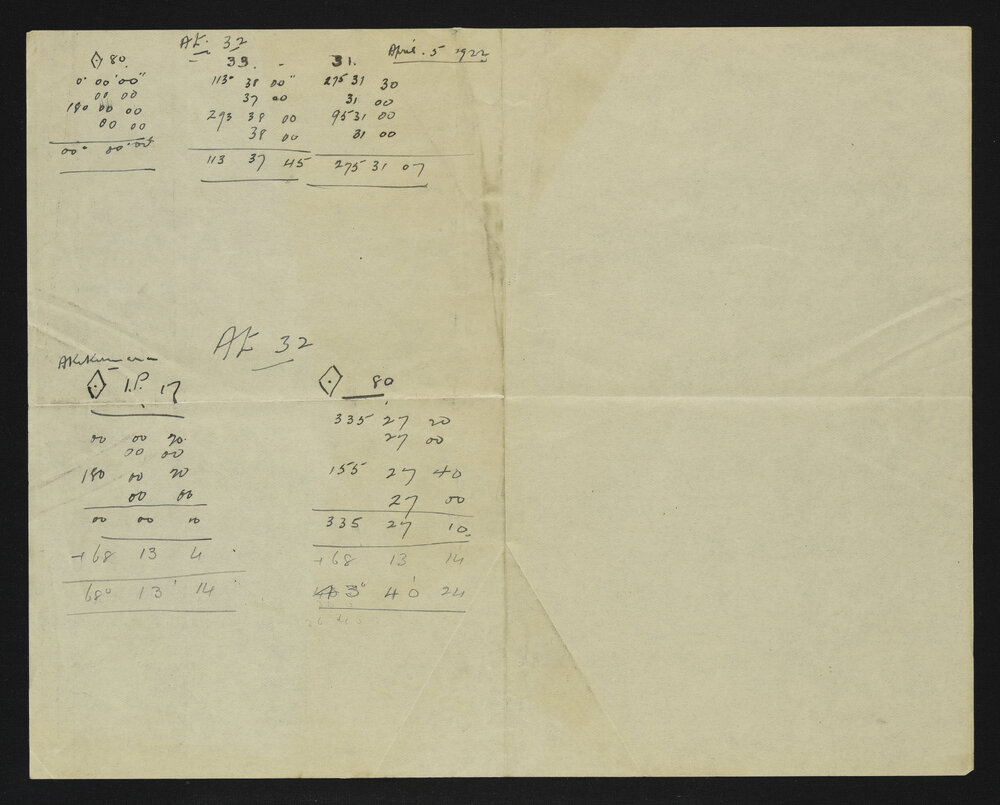 At. 32
April. 5 1922
80. 33. - 31.
0° 00' 00" 113° 38 00" 275 31 30
00 00 37 00 31 00
180 00 00 293 38 00 95 31 00
00 00 38 00 31 00
00° 00' 00" 113 37 45 275 31 07
At 32
I.P. 17 80
00 00 20 335 27 20
00 00 27 00
180 00 20 155 27 40
00 00 27 00
00 00 10 335 27 10
+68 13 4 +68 13 14
68° 13' 14" 3° 40' 24